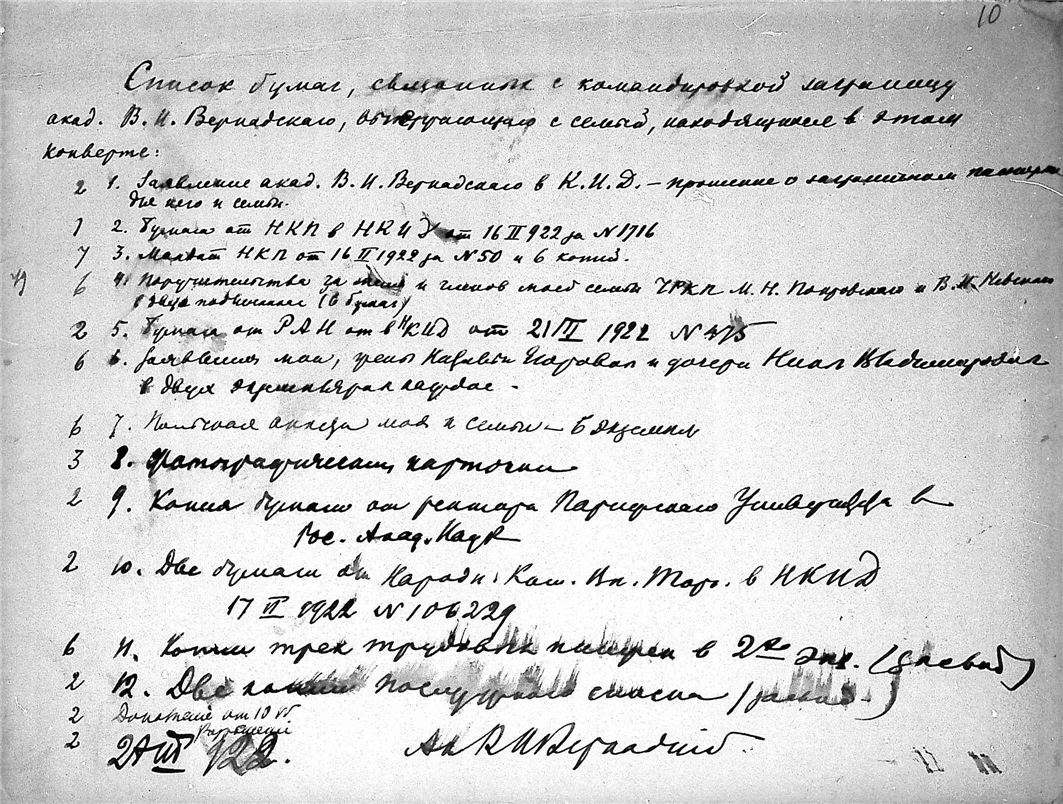 10
Список бумаг, связанных с командировкой заграницу
акад. В. И. Вернадского, с семьей, находящихся в этом
конверте:
2 1. Заявление акад. В. И. Вернадского в К.И.Д. – прошение о заграничном паспорте
для него и семьи.
1 2. Бумага от НКП в НКИД от 16 II 922 за N 1716
7 3. Мандат НКП от 16 II 1922 за N 50 и 6 копий.
6 4. Поручительства за меня и членов моей семьи ЧРКП М. Н. Покровского и В. И. Невского
в двух (6 бумаг)
2 5. Бумага от РАН от в НКИД от 21/II 1922 N 475
6 6. Заявления мои, жены Наталии Егоровны и дочери Нины Владимировны
в двух экземплярах каждое.
6 7. анкета моя и семьи – 6 экземпл
3 8. Фотографических карточки
2 9. Копия бумаги от ректора Парижского Университета в
Рос. Акад. Наук
2 10. Две бумаги от Народн. Ком. Вн. Торг. в НКИД
17 II 1922 N 106229
6 11. Копии трех трудовых книжек в 2ух экз. (засвид)
2 12. Две копии послужного списка (засвид.)
2 от 10 VI
2 922.
Ак В И Вернадский